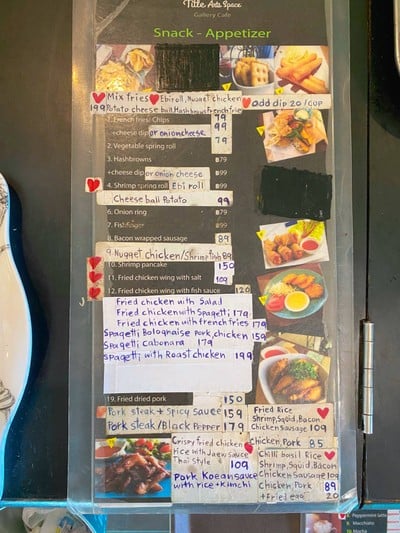 Title Arts Space
Gallery Cafe
Snack - Appetizer
Mix fries Ebi roll, Nugget chicken
199 Potato cheese ball, Hashbrowns French fries
add dip 20/cup
1. French fries/ Chips 79
+cheese dip or onion cheese 99
2. Vegetable spring roll 79
3. Hashbrowns ฿79
+cheese dip or onion cheese ฿99
4. Shrimp spring roll Ebi roll ฿99
Cheese ball Potato 99
6. Onion ring ฿79
7. Fishfinger ฿99
8. Bacon wrapped sausage 89
9 Nugget chicken/Shrimp 89
10. Shrimp pancake 150
11. Fried chicken wing with salt 109
12. Fried chicken wing with fish sauce 120
Fried chicken with Salad
Fried chicken with Spagetti 179
Fried chicken with french fries 179
Spagetti Bolognaise pork, chicken 159
Spagetti cabonara 179
Spagetti with Roast chicken 199
19. Fried dried pork 150
Pork steak + Spicy Sauce 159
Pork steak/Black Pepper 179
Fried Rice
Shrimp, Squid, Bacon
Chicken Sausage 109
Chicken, Pork 85
Crispy fried chicken
Rice with Jaew sauce
Thai style 109
Pork Koeansauce
with rice + kimchi
Chilli basil Rice
Shrimp, Squid, Bacon
Chicken Sausage 109
Chicken, Pork 89
+Fried egg 20
Peppermint Latte
Macchiato
Mocha